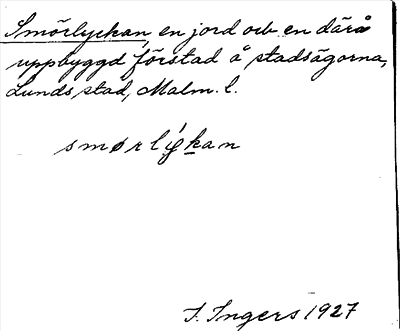 Smörlyckan, en jord och en därå
uppbyggd förstad å stadsägorna,
Lunds stad, Malm. l.
smørlýkan
I. Ingers 1927